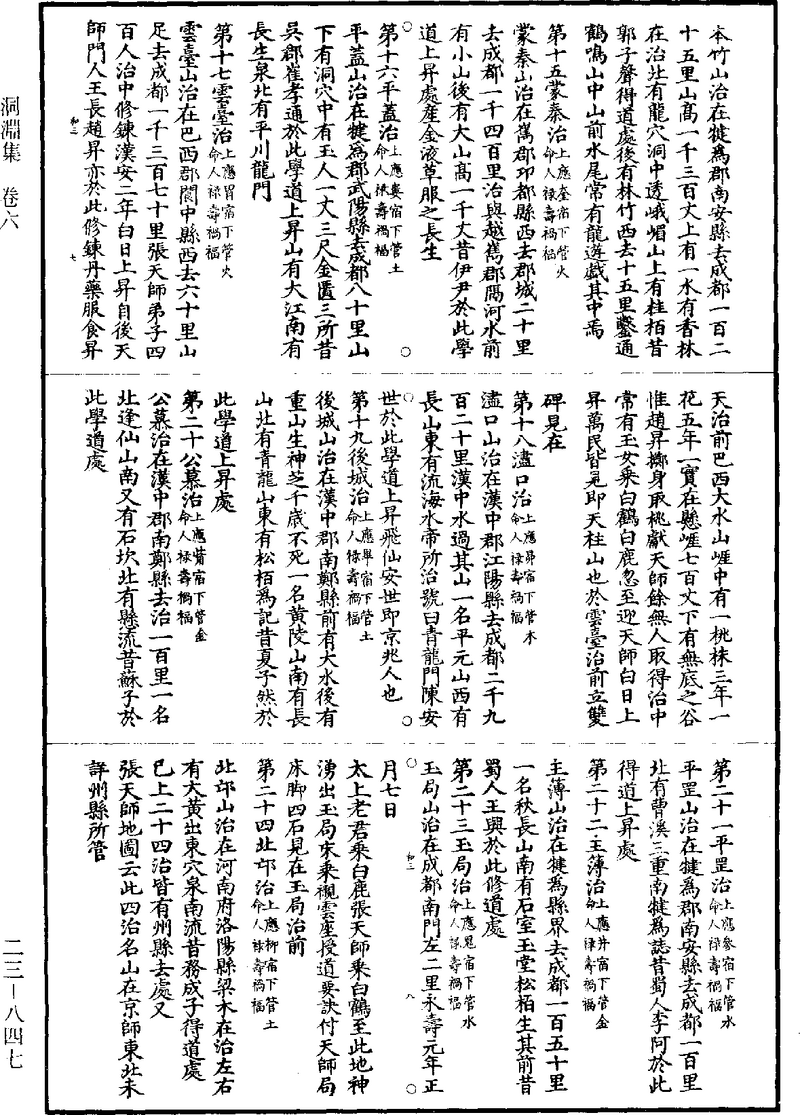 洞淵集　卷六
本竹山治在犍爲郡南安縣去成都一百二
十五里山高一千三百丈上有一水有香林
在治北有龍穴洞中透峨嵋山上有桂栢昔
郭子聲得道處後有林竹西去十五里鑿通
鶴鳴山中山前水尾常有龍遊戲其中焉
第十五蒙秦治上應奎宿下管火命人祿壽禍福
蒙秦山治在嶲郡邛都縣西去郡城二十里
去成都一千四百里治與越嶲郡隔河水前
有小山後有大山高一千丈昔伊尹於此學
道上昇處産金液草服之長生
第十六平蓋治上應婁宿下管土命人祿壽禍福
平蓋山治在犍爲郡武陽縣去成都八十里山
下有洞穴中有玉人一丈三尺金匱三所昔
吳郡崔孝通於此學道上昇山有大江南有
長生泉北有平川龍門
第十七雲臺治上應胃宿下管火命人祿壽禍福
雲臺山治在巴西郡閬中縣西去六十里山
足去成都一千三百七十里張天師弟子四
百人治中修鍊漢安二年白日上昇自後天
師門人王長趙昇亦於此修鍊丹藥服食昇
和三
七
天治前巴西大水山崕中有一桃株三年一
花五年一實在懸崕七百丈下有無底之谷
惟趙昇擲身取桃獻天師餘無人取得治中
常有玉女乘白鶴白鹿忽至迎天師白日上
昇萬民皆見即天柱山也於雲臺治前立雙
碑見在
第十八濜口治上應昴宿下管木命人祿壽禍福
濜口山治在漢中郡江陽縣去成都二千九
百二十里漢中水過其山一名平元山西有
長山東有流海水帝所治號曰青龍門陳安
世於此學道上昇飛仙安世即京兆人也
第十九後城治上應畢宿下管土命人祿壽禍福
後城山治在漢中郡南鄭縣前有大水後有
重山生神芝千歲不死一名黄陵山南有長
山北有青龍山東有松栢爲記昔夏子然於
此學道上昇處
第二十公慕治上應觜宿下管金命人祿壽禍福
公慕治在漢中郡南鄭縣去治一百里一名
北逢仙山南又有石坎北有懸流昔蘇子於
此學道處
第二十一平罡治上應參宿下管水命人祿壽禍福
平罡山治在犍爲郡南安縣去成都一百里
北有曹溪三重南犍爲誌昔蜀人李阿於此
得道上昇處
第二十二主簿治上應井宿下管金命人祿壽禍福
主簿山治在犍爲縣界去成都一百五十里
一名秋長山南有石室玉堂松栢生其前昔
蜀人王興於此修道處
第二十三玉局治上應鬼宿下管水命人祿壽禍福
玉局山治在成都南門左二里永壽元年正
和三
八
月七日
太上老君乘白鹿張天師乘白鶴至此地神
湧出玉局床乘襯雲座授道要訣付天師局
床脚四石見在玉局治前
第二十四北邙治上應柳宿下管土命人祿壽禍福
北邙山治在河南府洛陽縣梁木在治左右
有大黄出東穴泉南流昔務成子得道處
已上二十四治皆有州縣去處又
張天師地圖云此四治名山在京師東北未
詳州縣所管
二三－八四七